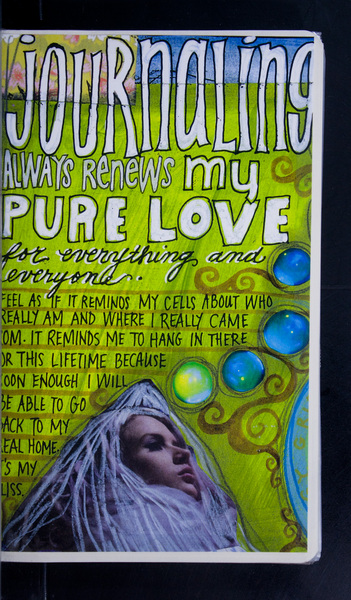 JOURNALING
ALWAYS RENEWS MY
PURE LOVE
for everything and
everyone..
FEEL AS IF IT REMINDS MY CELLS ABOUT WHO
REALLY AM AND WHERE I REALLY CAME
OM. IT REMINDS ME TO HANG IN THERE
OR THIS LIFETIME BECAUSE
OON ENOUGH I WILL
BE ABLE TO GO
ACK TO MY
EAL HOME.
'S MY
LISS.